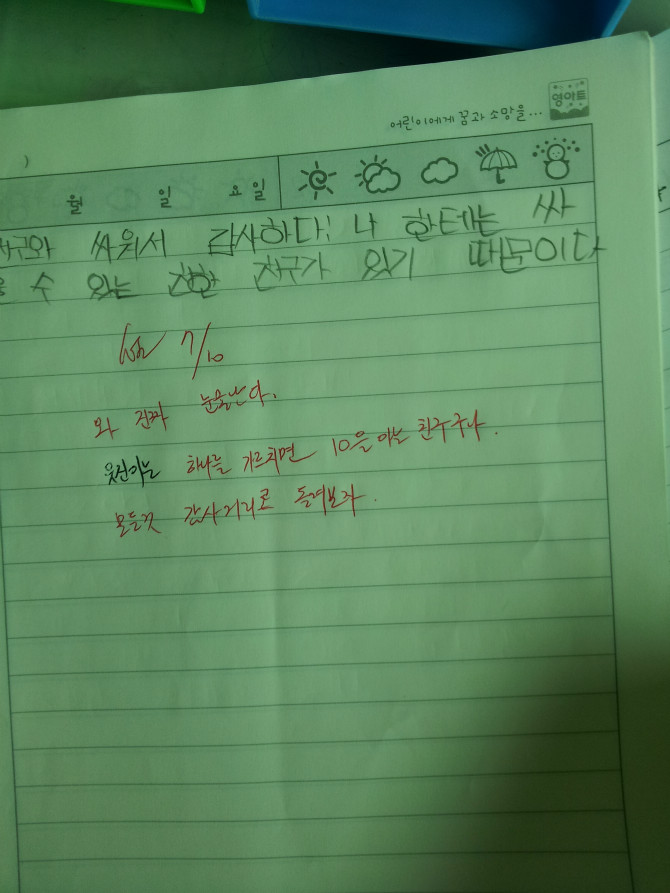 어린이에게 꿈과 소망을... 영아트
)
월 일 요일
친구와 싸워서 감사하다! 나 한테는 싸
울 수 있는 착한 친구가 있기 때문이다
7/10
와 진짜 눈물난다.
하나를 가르치면 10을 아는 친구구나.
모든것 감사거리로 돌려보자.